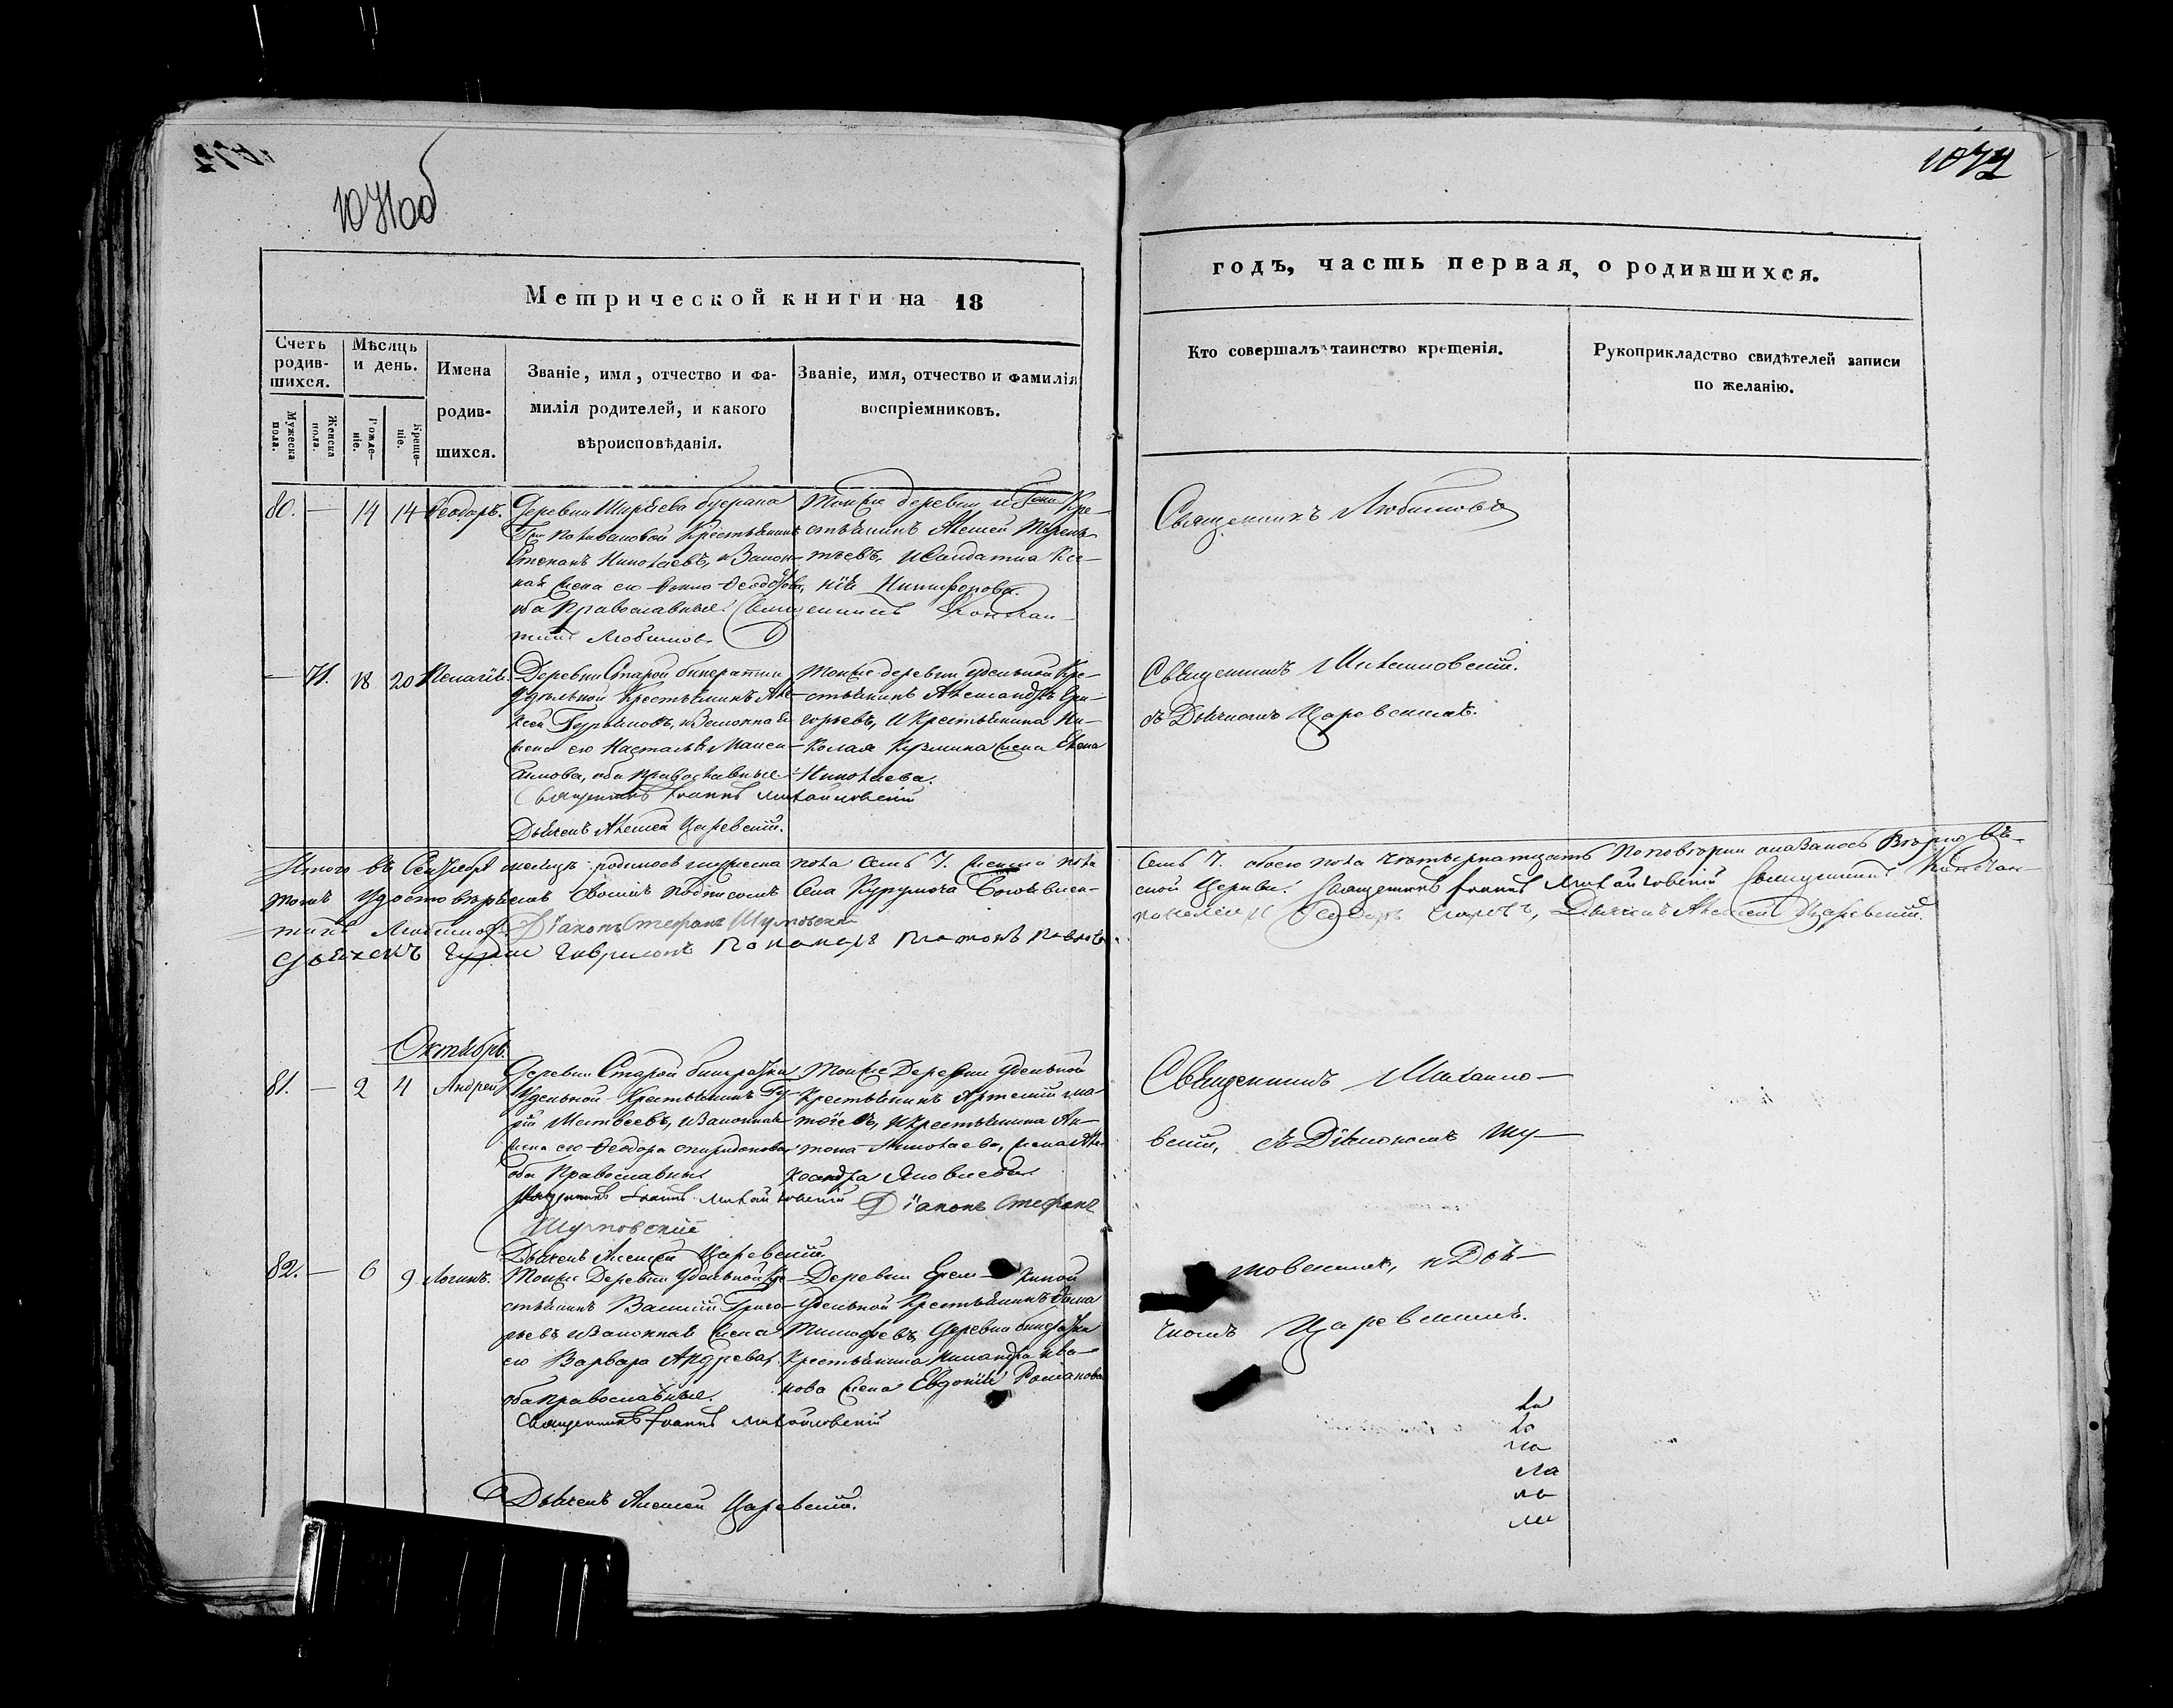 1071об
1072
Метрической книги на 18
годъ, часть первая, о родившихся.
Счетъ родив-шихся.
Мужеска пола.
Женска пола.
Мѣсяцъ и день.
Рожде-ніе.
Креще-ніе.
Имена родив-шихся.
Званіе, имя, отчество и фа-
милія родителей, и какого
вѣроисповѣданія.
Званіе, имя, отчество и фамилія
воспріемниковъ.
Кто совершалъ таинство крещенія.
Рукоприкладство свидѣтелей записи
по желанію.
80. — 14 14 Ѳеодоръ.
Деревни Ширяева буерака
Крестьянинъ
Степанъ Николаевъ, и Закон-
ная жена его Ѳеодорова,
оба Православные. Священникъ Констан-
тинъ Любимов
Тойже деревни Кре-
стьянинъ Алексей Терень-
тьевъ, и Солдатка Ксе-
нія Никифорова.
Священникъ Любимовъ
— 71. 18 20 Пелагія.
Деревни Старой бинератки
Удѣльной Крестьянинъ Але-
ксей Гурьяновъ, и Законная
жена его Настасья Макси-
мова, оба православные.
Священникъ Іоаннъ Михайловскій
Дьячекъ Алексей Царевскій.
Тойже деревни Удельной Кре-
стьянинъ Александръ Гри-
горьевъ, и Крестьянина Ни-
колая Кузмина жена Елена
Николаева.
Священникъ Михайловскій.
съ Дьячкомъ Царевскимъ.
Итого въ Сентябрѣ месяцѣ родилось мужеска пола Семь 7. женска пола
Семь 7. обоего пола четырнатцать По повторки оказалось Вѣрно Въ
томъ удостовѣряемъ Своимъ подписомъ Села Курумоча Богоявлен-
ской Церкви. Священникъ Іоаннъ Михайловскій Священникъ Констан-
тинъ Любимов. Діаконъ Стефанъ Шутовскій
Дьячекъ Алексей Царевскій.
дьячекъ Гурій Гавриловъ Пономарь Платонъ Павловъ
Октябрь.
81. — 2 4 Андрей
Деревни Старой бинератки
Удельной Крестьянинъ Гу-
рій Матвеевъ, и Законная
жена его Ѳеодора спиридонова
оба Православные
Священникъ Іоаннъ Михайловскій Діаконъ Стефанъ
Шутовскій
Дьячекъ Алексей Царевскій
Тойже Деревни Удельной
Крестьянинъ Артемій Ма-
твѣевъ, и Крестьянина Ан-
тона Николаева, жена Але-
ксандра Яковлева.
Священникъ Михайло-
вскій, съ Діакономъ Шу-
товскимъ, и Дья-
чкомъ Царевскимъ.
82. — 6 9 Логинъ.
Тойже Деревни Удельной Кре-
стьянинъ Василій Григо-
рьевъ и Законная жена
его Варвара Андрева,
оба православные.
Священникъ Іоаннъ Михайловскій
Дьячекъ Алексей Царевскій.
Деревни
Удельной Крестьянинъ
Тимофеевъ, Деревни бинератки
Крестьянина Никандра Ива-
нова жена Евдокія Романова